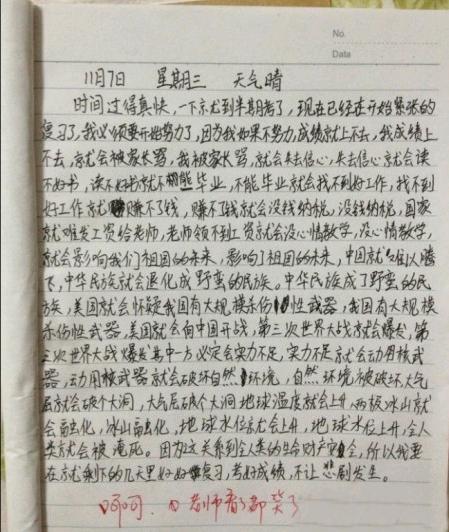 No.
Date
11月7日 星期三 天气晴
时间过得真快，一下就到半期考了，现在已经在开始紧张的
复习了，我必须要开始努力了，因为我如果不努力，成绩就上不去，我成绩上
不去，就会被家长骂，我被家长骂，就会失去信心，失去信心就会读
不好书，读不好书就不能毕业，不能毕业就会找不到好工作，找不到
好工作就赚不了钱，赚不了钱就会没钱纳税，没钱纳税，国家
就难发工资给老师，老师领不到工资就会没心情教学，没心情教学，
就会影响我们祖国的未来，影响了祖国的未来，中国就难以腾
飞，中华民族就会退化成野蛮的民族。中华民族成了野蛮的民
族，美国就会怀疑我国有大规模杀伤性武器，我国有大规模
杀伤性武器，美国就会向中国开战，第三次世界大战就会爆发，第
三次世界大战爆发其中一方必定会实力不足，实力不足就会动用核武
器，动用核武器就会破坏自然环境，自然环境被破坏，大气
层就会破个大洞，大气层破个大洞地球温度就会上升，两极冰山就
会融化，冰山融化，地球水位就会上升，地球水位上升，全人
类就会被淹死。因为这关系到全人类的生命财产安全，所以我要
在就剩下的几天里好好复习，考好成绩，不让悲剧发生。
呵呵，老师看了都笑了